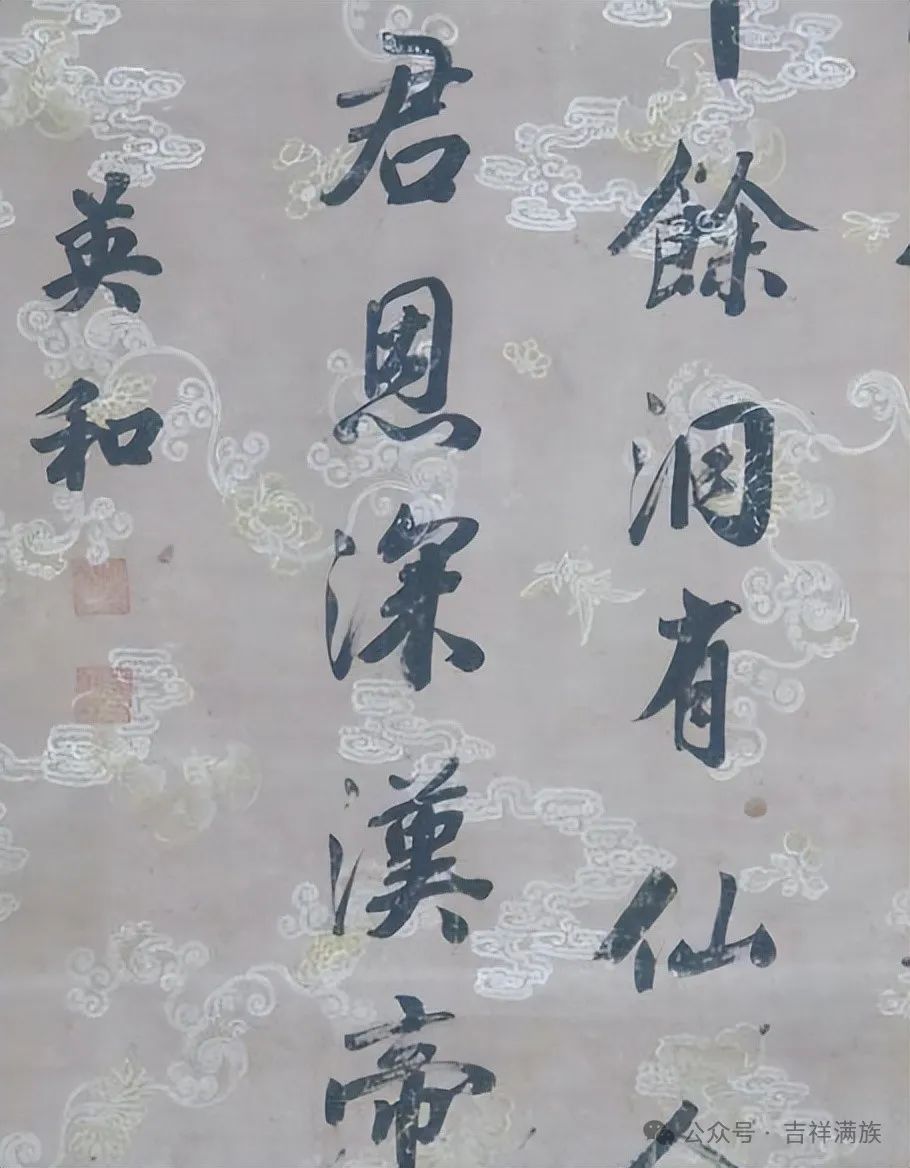 餘洞有仙
君恩深漢帝
英和
公众号·吉祥满族